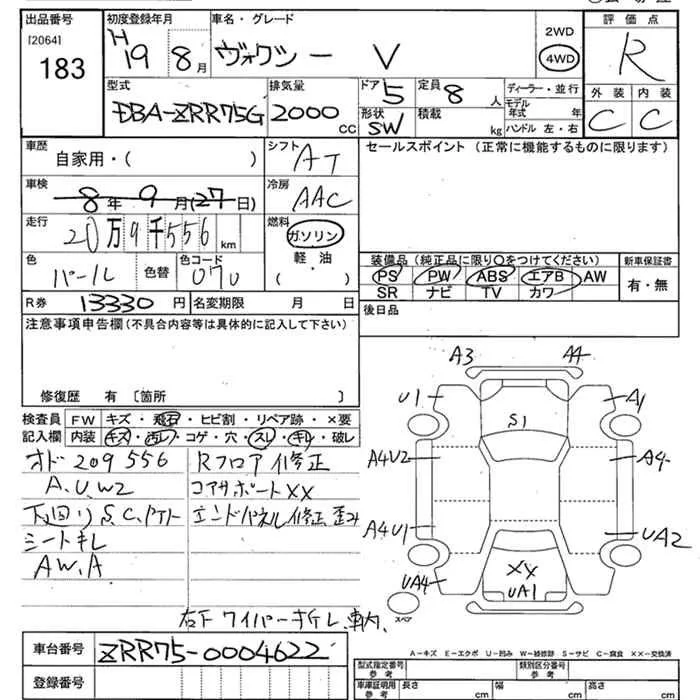 出品番号
[2064]
183
初度登録年月
H19 8月
車名・グレード
ヴォクシー V
2WD
4WD
評価点
R
外装 内装
C C
型式
DBA-ZRR75G
排気量
2000 CC
ドア 5
形状 SW
定員 8 人
積載 kg
ディーラー・並行
モデル年式 年
ハンドル 左・右
車歴
自家用・( )
シフト AT
セールスポイント (正常に機能するものに限ります)
車検
8年 9月(27日)
冷房 AAC
走行
20万9千556 km
燃料
ガソリン
軽油
( )
色
パール
色替
色コード
070
装備品 (純正品に限り○をつけてください)
PS PW ABS エアB AW
SR ナビ TV カワ
新車保証書
有・無
R券 13330円
名変期限 月 日
後日品
注意事項申告欄 (不具合内容等は具体的に記入して下さい)
修復歴 有 〔箇所 〕
検査員記入欄
FW キズ・飛石・ヒビ割・リペア跡・×要
内装 キズ・汚レ・コゲ・穴・スレ・キレ・破レ
オド 209556
A.U.W2
下回り S.C.
シートキレ
AW.A
Rフロア修正
コアサポートXX
エンドパネル修正 歪み
右下 ワイパー折レ、車内、
A3 A4
U1 A1
S1
A4U2 A4
A4U1 UA2
UA4 XX
UA1
スペア
車台番号
ZRR75-0004622
登録番号
A-キズ E-エクボ U-凹み W-補修跡 S-サビ C-腐食 XX-交換済
型式指定番号 参考
類別区分番号 参考
車庫証明用 参考
長さ cm
幅 cm
高さ cm